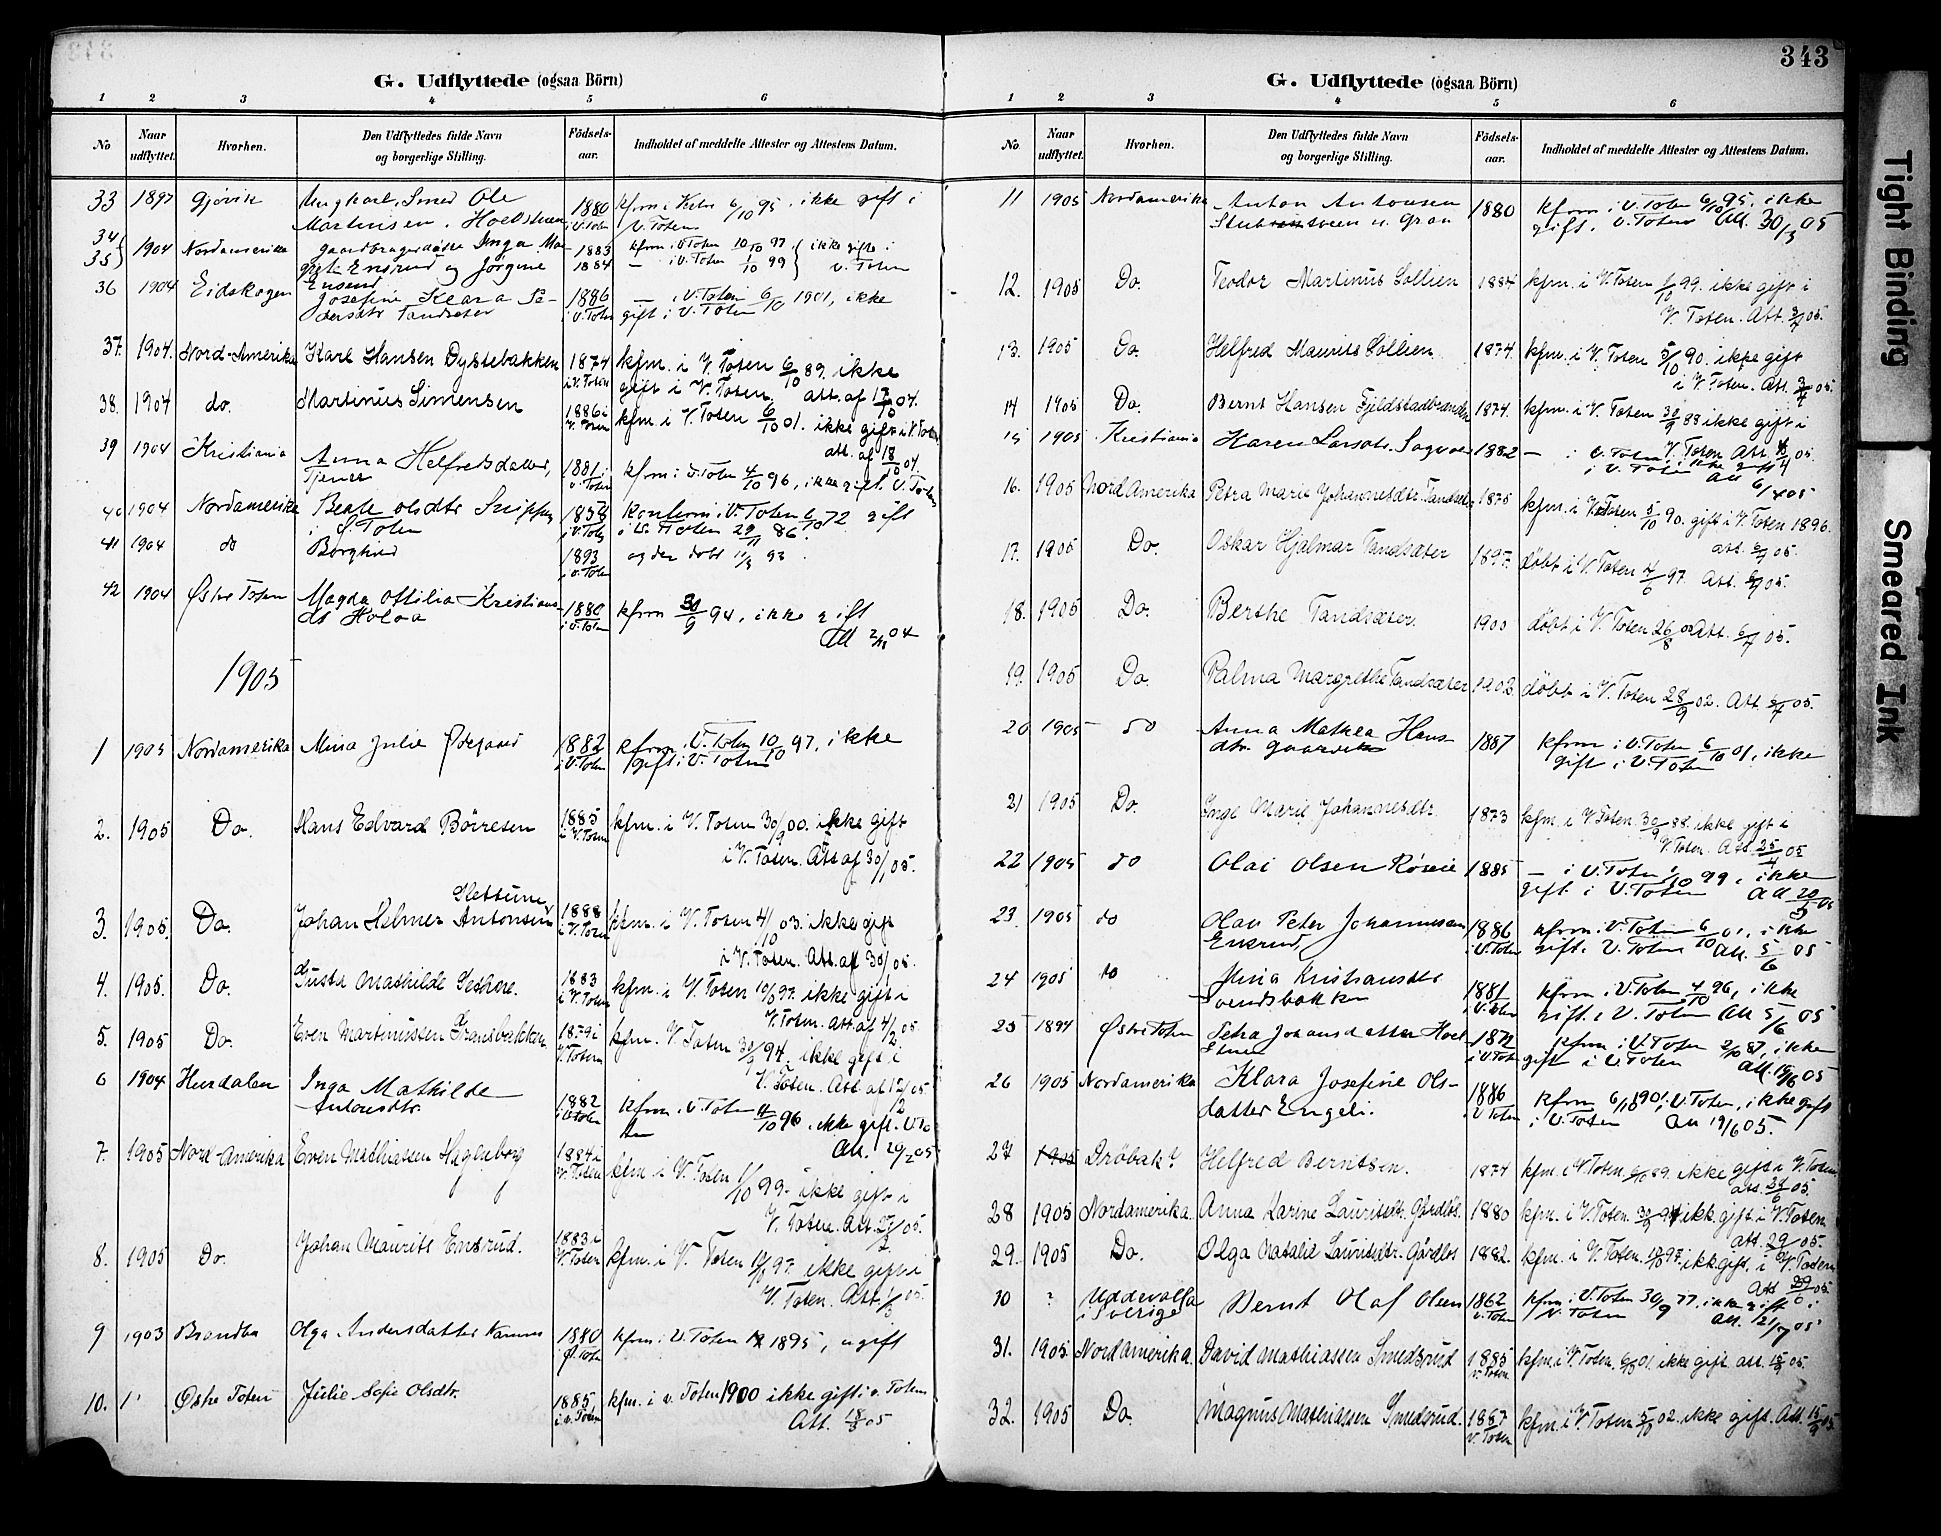 G. Udflyttede (ogsaa Börn)
1 2 3 4 5 6
No Naar udflyttet. Hvorhen. Den Udflyttedes fulde Navn og borgerlige Stilling. Födsels-aar. Indholdet af meddelte Attester og Attestens Datum.
33 1897 Gjøvik Ungkarl, Smed Ole 1880 kfrm i Vestre 6/10 95. ikke gift i
Martinsen, i V. Toten V. Toten
34 35 1904 Nordamerika gaardbrugerdøtre Inga Mar- 1883 kfrm. i V. Toten 10/10 97 ikke gifte i
grete Ensrud og Jørgine 1884 — i V. Toten 1/10 99 V. Toten
Ensrud
36 1904 Eidskogen Josefine Klara Pe- 1886 — i V. Toten 6/10 1901, ikke
dersdtr Tandsæter i V. Toten gift i V. Toten
37. 1904. Nord-Amerika Karl Hansen Dystebakken 1874 i V. Toten kfm. i V. Toten 6/10 89. ikke
gift i V. Toten. att. af 17/10 04.
38. 1904 do. Martinus Simensen 1886 i V. Toten kfm. i V. Toten 6/10 01. ikke gift i V. Toten
att. af 18/10 04.
39 1904 Kristiania Anna Helfredsdatter, 1881 i V. Toten kfrm i V. Toten 4/10 96, ikke gift i V. Toten
Tjener
40 1904 Nordamerika Beate Olsdtr 1858 i V. Toten Konferm i V. Toten 6/10 72 gift
i S. Toten i V. Toten 29/11 86.
41 1904 do Borghild 1893 i V. Toten og der døbt 93
42 1904 Østre Toten Magda Ottilia Kristians- 1880 i V. Toten kfrm 30/9 94, ikke gift
dt Holoa Att 04
1905
1 1905 Nordamerika Mina Julie Ødegaard 1882 i V. Toten kfrm. i V. Toten 10/10 97, ikke
gift i V. Toten
2. 1905 Do. Hans Edvard Börresen 1885 i V. Toten kfm. i V. Toten 30/9 00. ikke gift
i V. Toten. Att af 30/1 05.
3. 1905. Do. Johan Helmer Antonsen 1888 i V. Toten kfm. i V. Toten 4/10 03. ikke gift
i V. Toten. Att. af 30/1 05.
4. 1905. Do. Gusta Mathilde 1883 i V. Toten kfm. i V. Toten 10/10 97. ikke gift i
V. Toten. att. af 4/2 05
5. 1905 Do. Even Martinussen 1879 i V. Toten kfm. V. Toten 30/9 94. ikke gift i
V. Toten. Att. af 12/2 05.
6 1904 Hurdalen Inga Mathilde 1882 i V. Toten kfrm. i V. Toten 4/10 96, ikke gift i V. To
Antonsdtr. ten Att. 20/2 05
7. 1905 Nord Amerika Even Mathiassen Haglenborg 1884 i V. Toten kfm. i V. Toten 1/10 99. ikke gift i
V. Toten. Att. 05.
8. 1905 Do. Johan Maurits Ensrud. 1883 i V. Toten kfm. i V. Toten 97. ikke gift i
V. Toten. Att. 05.
9 1903 Brandbu Olga Andersdatter 1880 Ø. Toten kfrm. i V. Toten 1895, ugift
10. Østre Toten Julie Sofie Olsdtr. 1885 i V. Toten kfm. i V. Toten 1900 ikke gift i V. Toten
Att. 18/3 05
343
G. Udflyttede (ogsaa Börn)
1 2 3 4 5 6
No Naar udflyttet. Hvorhen. Den Udflyttedes fulde Navn og borgerlige Stilling. Födsels-aar. Indholdet af meddelte Attester og Attestens Datum.
11 1905 Nordamerika Anton Antonsen 1880 kfrm i V. Toten 6/10 95, ikke
gift i V. Toten Att. 30/3 05
12. 1905 Do. Teodor Martinus Sollien 1884 kfm. i V. Toten 1/10 99. ikke gift i
V. Toten. Att. 3/4 05.
13. 1905 Do. Helfred Maurits Sollien. 1874. kfm. i V. Toten 5/10 90. ikke gift
i V. Toten. Att. 3/4 05.
14 1905 Do. Bernt Hansen Fjeldstadbranden 1874. kfm. i V. Toten 30/9 88 ikke gift i
V. Toten Att. 05.
15 1905 Kristiania Karen Larsdtr. 1882 — i V. Toten ikke gift
i V. Toten att 6/4 05
16. 1905 Nord Amerika Petra Marie Johannesdtr. Tandsæter 1875 kfm. i V. Toten 5/10 90. gift i V. Toten 1896.
att. 05.
17. 1905 Do. Oskar Hjalmar Tandsæter 1897. döbt i V. Toten 97. Att. 05.
18. 1905 Do. Berthe Tandsæter. 1900 döbt i V. Toten 26/8 00 Att. 05.
19. 1905 Do. Palma Margrethe Tandsæter 1902 döbt i V. Toten 28/9 02. Att. 05.
20 1905 do Anna Mathea Hans- 1887 kfrm i V. Toten 6/10 01, ikke
dtr. gift i V. Toten
21 1905 Do. Inge Marie Johannesdtr. 1873 kfm. i V. Toten. 30/9 88. ikke gift i
V. Toten. Att. 25/4 05
22 1905 do Olai Olsen Røise 1885 — i V. Toten 1/10 99, ikke
gift i V. Toten Att 20/5 05
23. 1905 do Olav Peter Johannessen 1886 i V. Toten kfrm. i V. Toten 6/10 01, ikke
Ensrud, gift i V. Toten Att. 5/6 05
24 1905 do Mina Kristiansdtr 1881 i V. Toten kfrm. i V. Toten 4/10 96, ikke
Svendsbakken gift i V. Toten Att 5/6 05
25 1894 Østre Toten Petra Johansdatter 1872 i V. Toten kfrm i V. Toten 2/10 87, ikke
gift i V. Toten Att. 05
26 1905 Nordamerika Klara Josefine Ols- 1886 V. Toten kfrm 6/10 1901 i V. Toten, ikke gift
datter Engeli. i V. Toten Att 19/6 05.
27 1905 Dröbak? Helfred Berntsen. 1874 kfm. i V. Toten. 6/10 89. ikke gift i V. Toten
att. 05.
28 1905 Nordamerika. Anna Karine Lauritsdtr. Gårdløs 1880 kfm. i V. Toten. 30/9 94 ikk. gift i V. Toten.
att. 29/6 05.
29. 1905 Do. Olga Natalia Lauritsdtr. Gårdløs 1882. kfm. i V. Toten. 10/10 97 ikk. gift. i V. Toten
Att 29/6 05.
30 ? Uddevalla i Sverige Bernt Olaf Olsen 1862 V. Toten kfrm i V. Toten 30/9 77, ikke gift i
V. Toten att. 21/7 05
31. 1905 Nordamerika. David Mathiassen Smedsrud 1885 V. Toten kfm. i V. Toten. 6/10 01. ikke gift. att. 05.
32. 1905 Do. Magnus Mathiassen Smedsrud. 1887 V. Toten kfm. i V. Toten 5/10 02. ikke gift. Att. 15/9 05.
Tight Binding
Smeared Ink